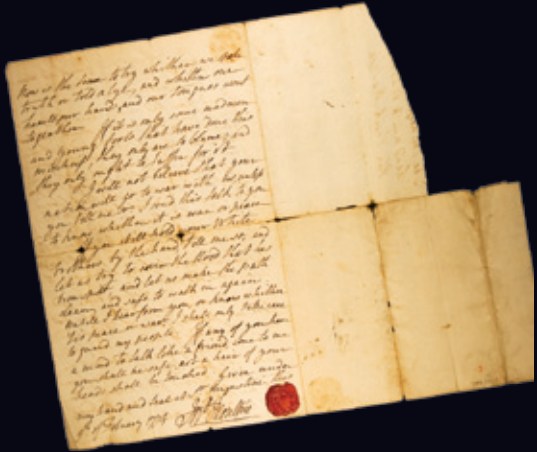 Now is the time to try whether we
truth or told a lye, and whether our
hearts our hands and our tongues went
together. If it is only some madmen
and young fools that have done this
mischief, they only are to blame, and
they only ought to suffer for it
I will not believe that your
nation will go to war with us until
you tell me so. I send this talk to you
to know whether it is war or peace
If you still hold your White
Brothers by the hand tell me so, and
let us try to cover the Blood that has
been spilt and let us make the path
clean and safe to walk in again.
untill I hear from you or know whether
tis peace or war, I shall only take care
to guard my people. If any of you have
a mind to talk like a friend come to me
you shall be safe, not a hair of your
heads shall be touched. Given under
my hand and seal at St Augustine this
of February